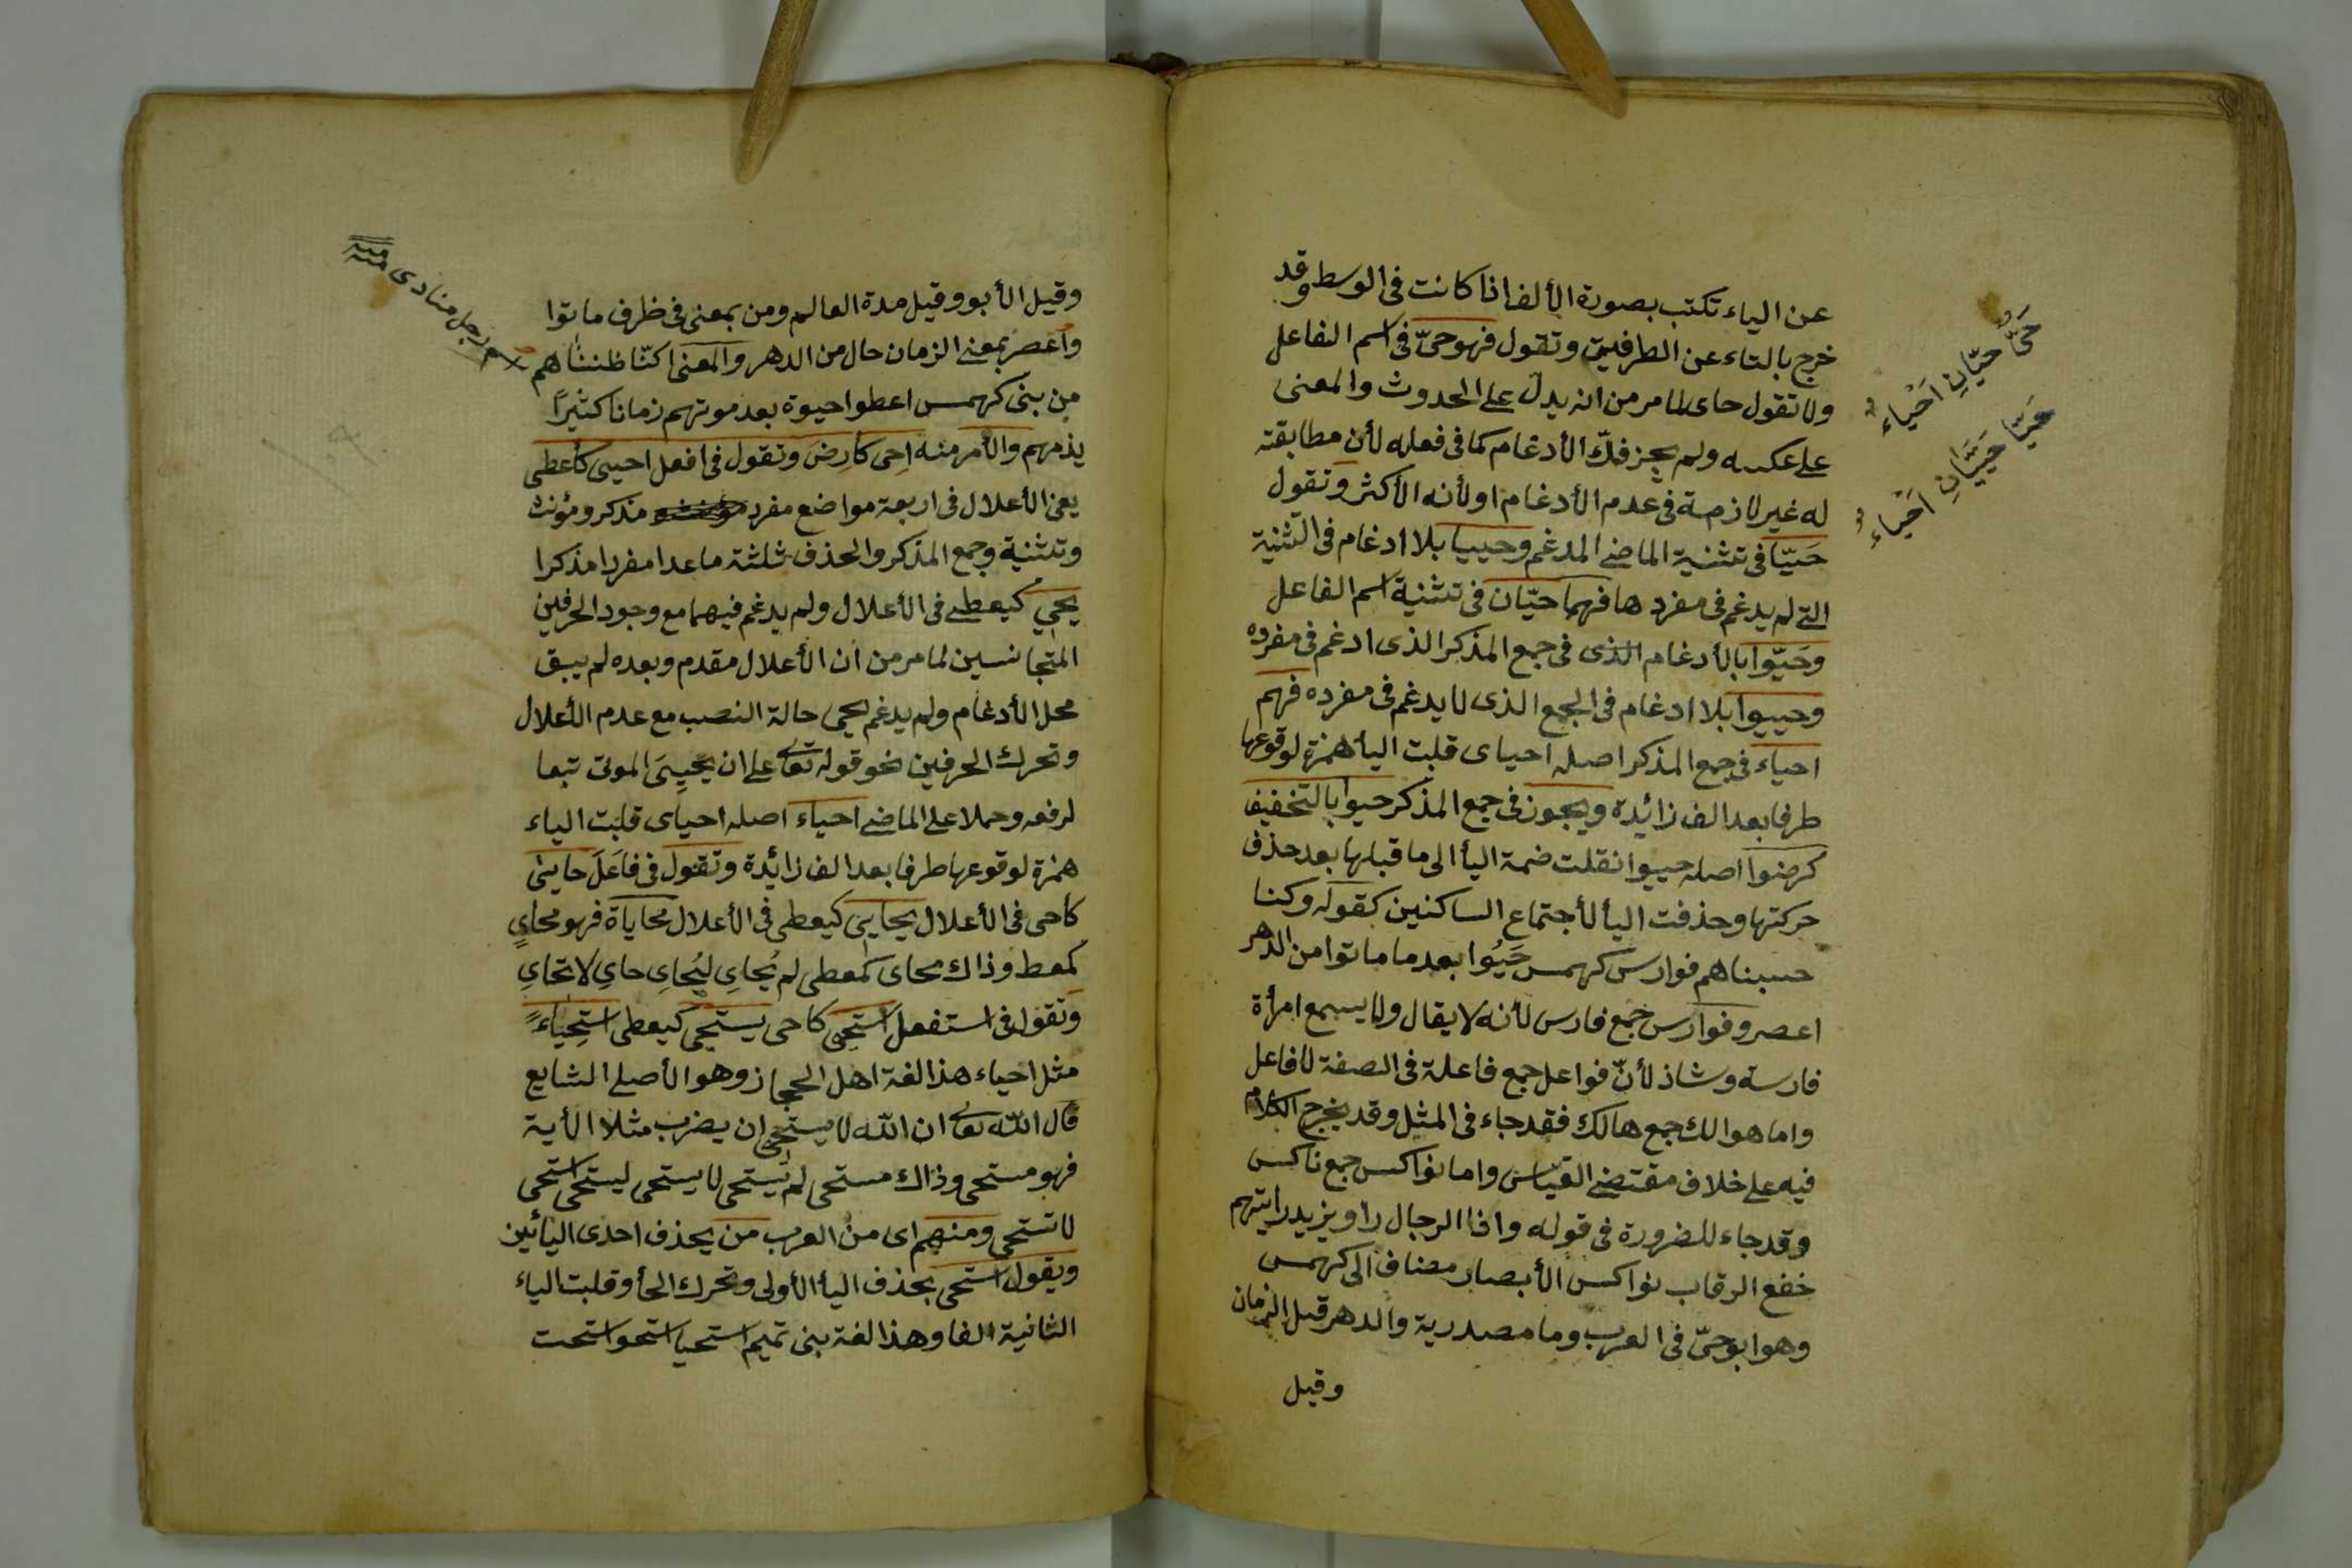 عن الياء تكتب بصورة الألف اذا كانت فى الوسط وقد
خرج بالتاء عن الطرفية وتقول فهو حىّ فى اسم الفاعل
ولا تقول حاى لما مر من انه يدل على الحدوث والمعنى
على عكسه ولم يجز فكّ الأدغام كما فى فعله لأن مطابقته
له غير لازمة فى عدم الأدغام او لأنه الأكثر وتقول
حَيّا فى تثنية الماضى المدغم وحييا بلا ادغام فى التثنية
التى لم يدغم فى مفردها فهما حيّان فى تثنية اسم الفاعل
وحَيّوا بالأدغام الذى فى جمع المذكر الذى ادغم فى مفرده
وحييوا بلا ادغام فى الجمع الذى لا يدغم فى مفرده فهم
احياء فى جمع المذكر اصله احياى قلبت اليأ همزة لوقوعها
طرفا بعد الف زائدة ويجوز فى جمع المذكر حيوا بالتخفيف
كرضوا اصله حييوا نقلت ضمة اليأ الى ما قبلها بعد حذف
حركتها وحذفت اليأ لأجتماع الساكنين كقوله وكنا
حسبناهم فوارس كهمس حَيُوا بعد ما ماتوا من الدهر
اعصر وفوارس جمع فارس لأنه لا يقال ولا يسمع امرأة
فارسة وشاذ لأنّ فواعل جمع فاعلة فى الصفة لا فاعل
واما هوالك جمع هالك فقد جاء فى المثل وقد يخرج الكلام
فيه على خلاف مقتضى القياس واما نواكس جمع ناكس
وقد جاء للضرورة فى قوله واذا الرجال راو يزيد رايتهم
خضع الرقاب نواكس الأبصار مضاف الى كهمس
وهو ابو حىّ فى العرب وما مصدرية والدهر قبل الزمان
وقيل
حَىّ حيّانِ اَحْياءٌ
حَيَىا حَيَيَانِ اَحْياءٌ
وقيل الأبو وقيل مدة العالم ومن بمعنى فى ظرف ماتوا
واعصر بمعنى الزمان حال من الدهر والمعنى اكنّا ظنناهم
من بنى كهمس اعطوا حيوة بعد موتهم زمانا كثيرًا
يذمهم والأمر منه اِحى كارض وتقول فى افعل احيى كأعطى
يعنى الأعلال فى اربعة مواضع مفرد مذكر ومؤنث
وتثنية وجمع المذكر والحذف ثلثة ما عدا مفردا مذكرا
يحيي كيعطى فى الأعلال ولم يدغم فيهما مع وجود الحرفين
المتجانسين لما مر من ان الأعلال مقدم وبعده لم يبق
محل الأدغام ولم يدغم يحيى حالة النصب مع عدم الأعلال
وتحرك الحرفين نحو قوله تعالى على ان يحيِىَ الموتى تبعا
لرفعه وحملا على الماضى احياء اصله احياى قلبت الياء
همزة لوقوعها طرفا بعد الف زائدة وتقول فى فاعَلَ حايىٰ
كاحى فى الأعلال يحايى كيعطى فى الأعلال محاياة فهو محاىٍ
كمعط وذاك محاى كمعطى لم يُحاىِ ليُحاىِ حاىِ لا تحاىِ
وتقول فى استفعل استحيى كاحى يستحيى كيعطى استِحياءً
مثل احياء هذا لغة اهل الحجاز وهو الأصلى الشايع
قال الله تعالى ان الله لا يستحيى ان يضرب مثلا الأية
فهو مستحى وذاك مستحى لم يستحى لا يستحى ليستحى استحى
لا تستحى ومنهم اى من العرب من يحذف احدى اليائين
ويقول استحى بحذف اليأ الأولى وتحرك الحأ وقلبت الياء
الثانية الفا وهذا لغة بنى تميم استحيا استحوا استحت
اسم رجل منادى منه